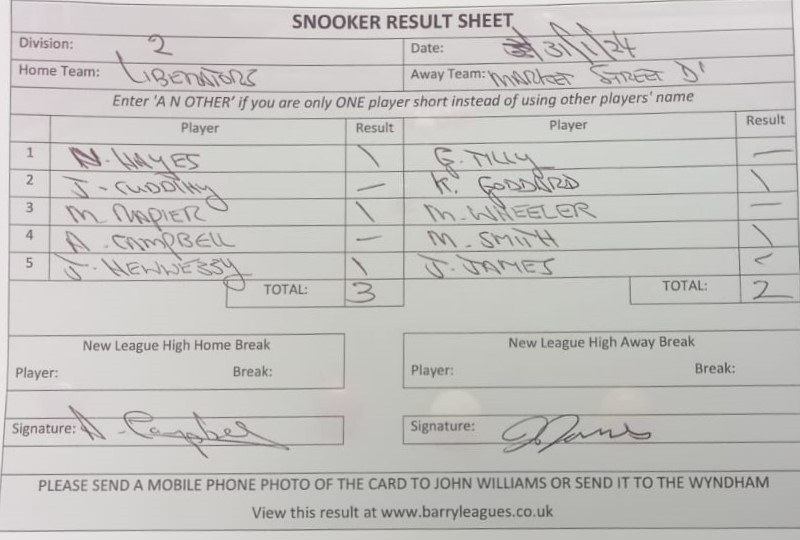 SNOOKER RESULT SHEET
Division: 2 Date: 31/1/24
Home Team: LIBERATORS Away Team: MARKET STREET D'
Enter 'A N OTHER' if you are only ONE player short instead of using other players' name
Player Result Player Result
1 N. HAYES \ G. TILLY —
2 J. CUDDIHY — K. GODDARD \
3 M. NAPIER \ M. WHEELER —
4 A. CAMPBELL — M. SMITH \
5 J. HENNESSY \ J. JAMES
TOTAL: 3 TOTAL: 2
New League High Home Break New League High Away Break
Player: Break: Player: Break:
Signature: A. Campbell Signature:
PLEASE SEND A MOBILE PHONE PHOTO OF THE CARD TO JOHN WILLIAMS OR SEND IT TO THE WYNDHAM
View this result at www.barryleagues.co.uk